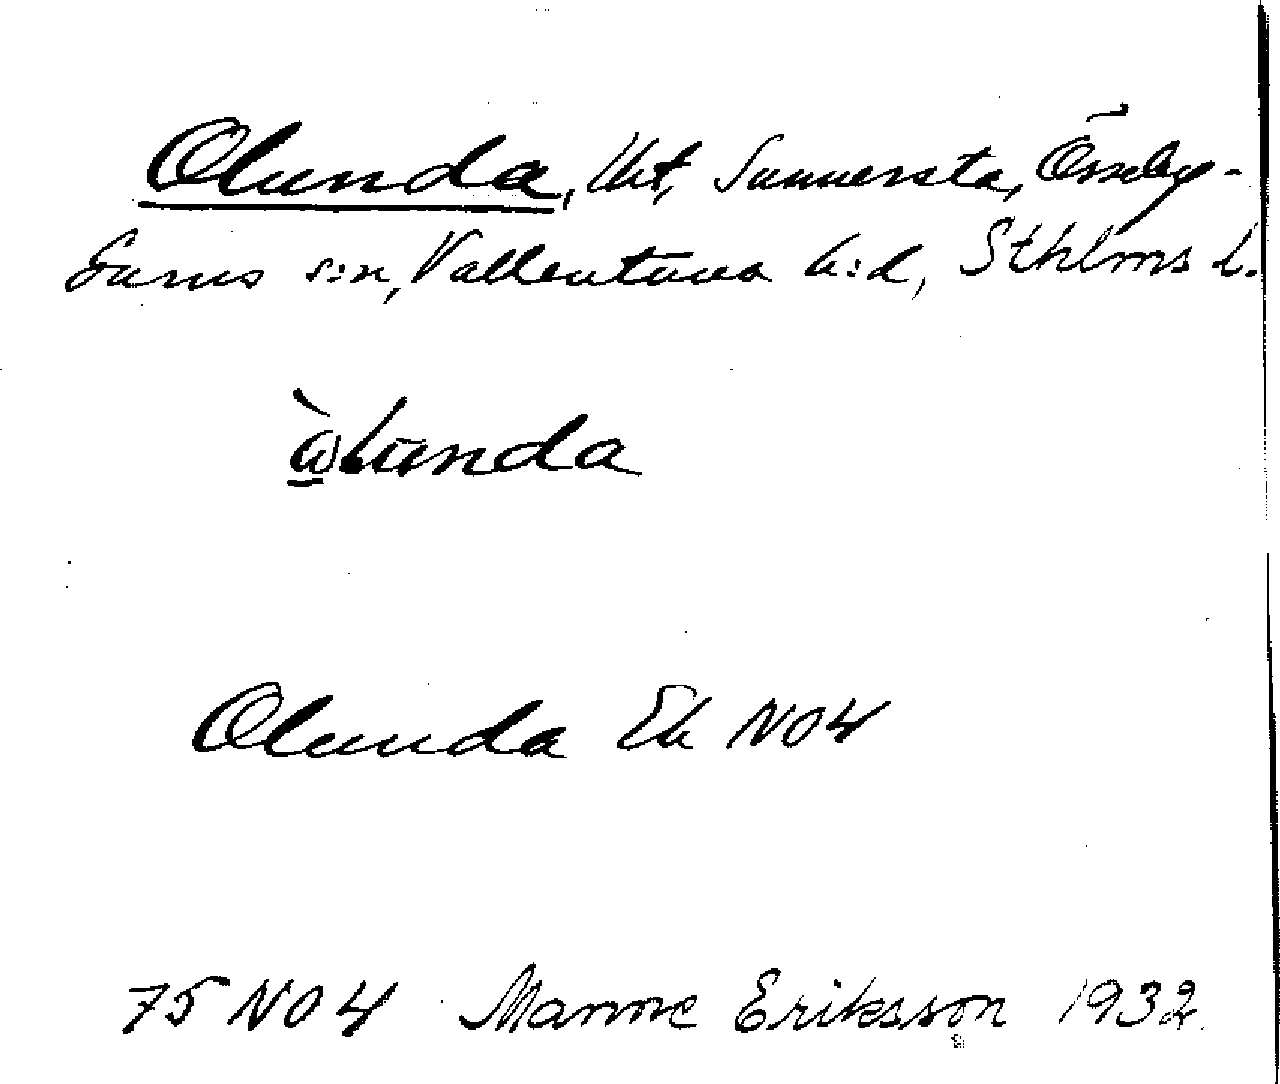 Olunda, Uht, Sunnersta, Össeby-
Garns s:n, Vallentuna h:d, Sthlms l.
ὼlunda
Olunda Ek NO4
75 NO4 Manne Eriksson 1932